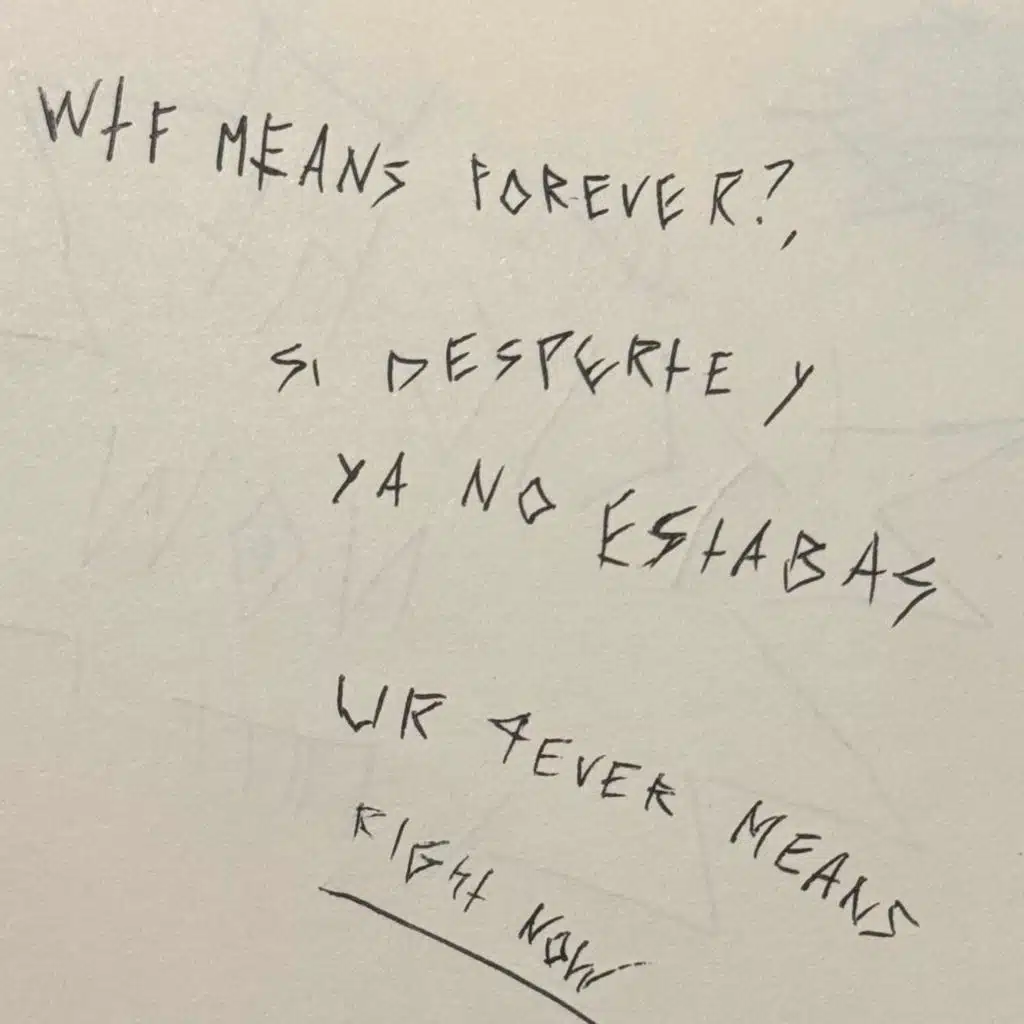 WTF MEANS FOREVER?,
SI DESPERTE Y
YA NO ESTABAS
UR 4EVER MEANS
RIGHT NOW